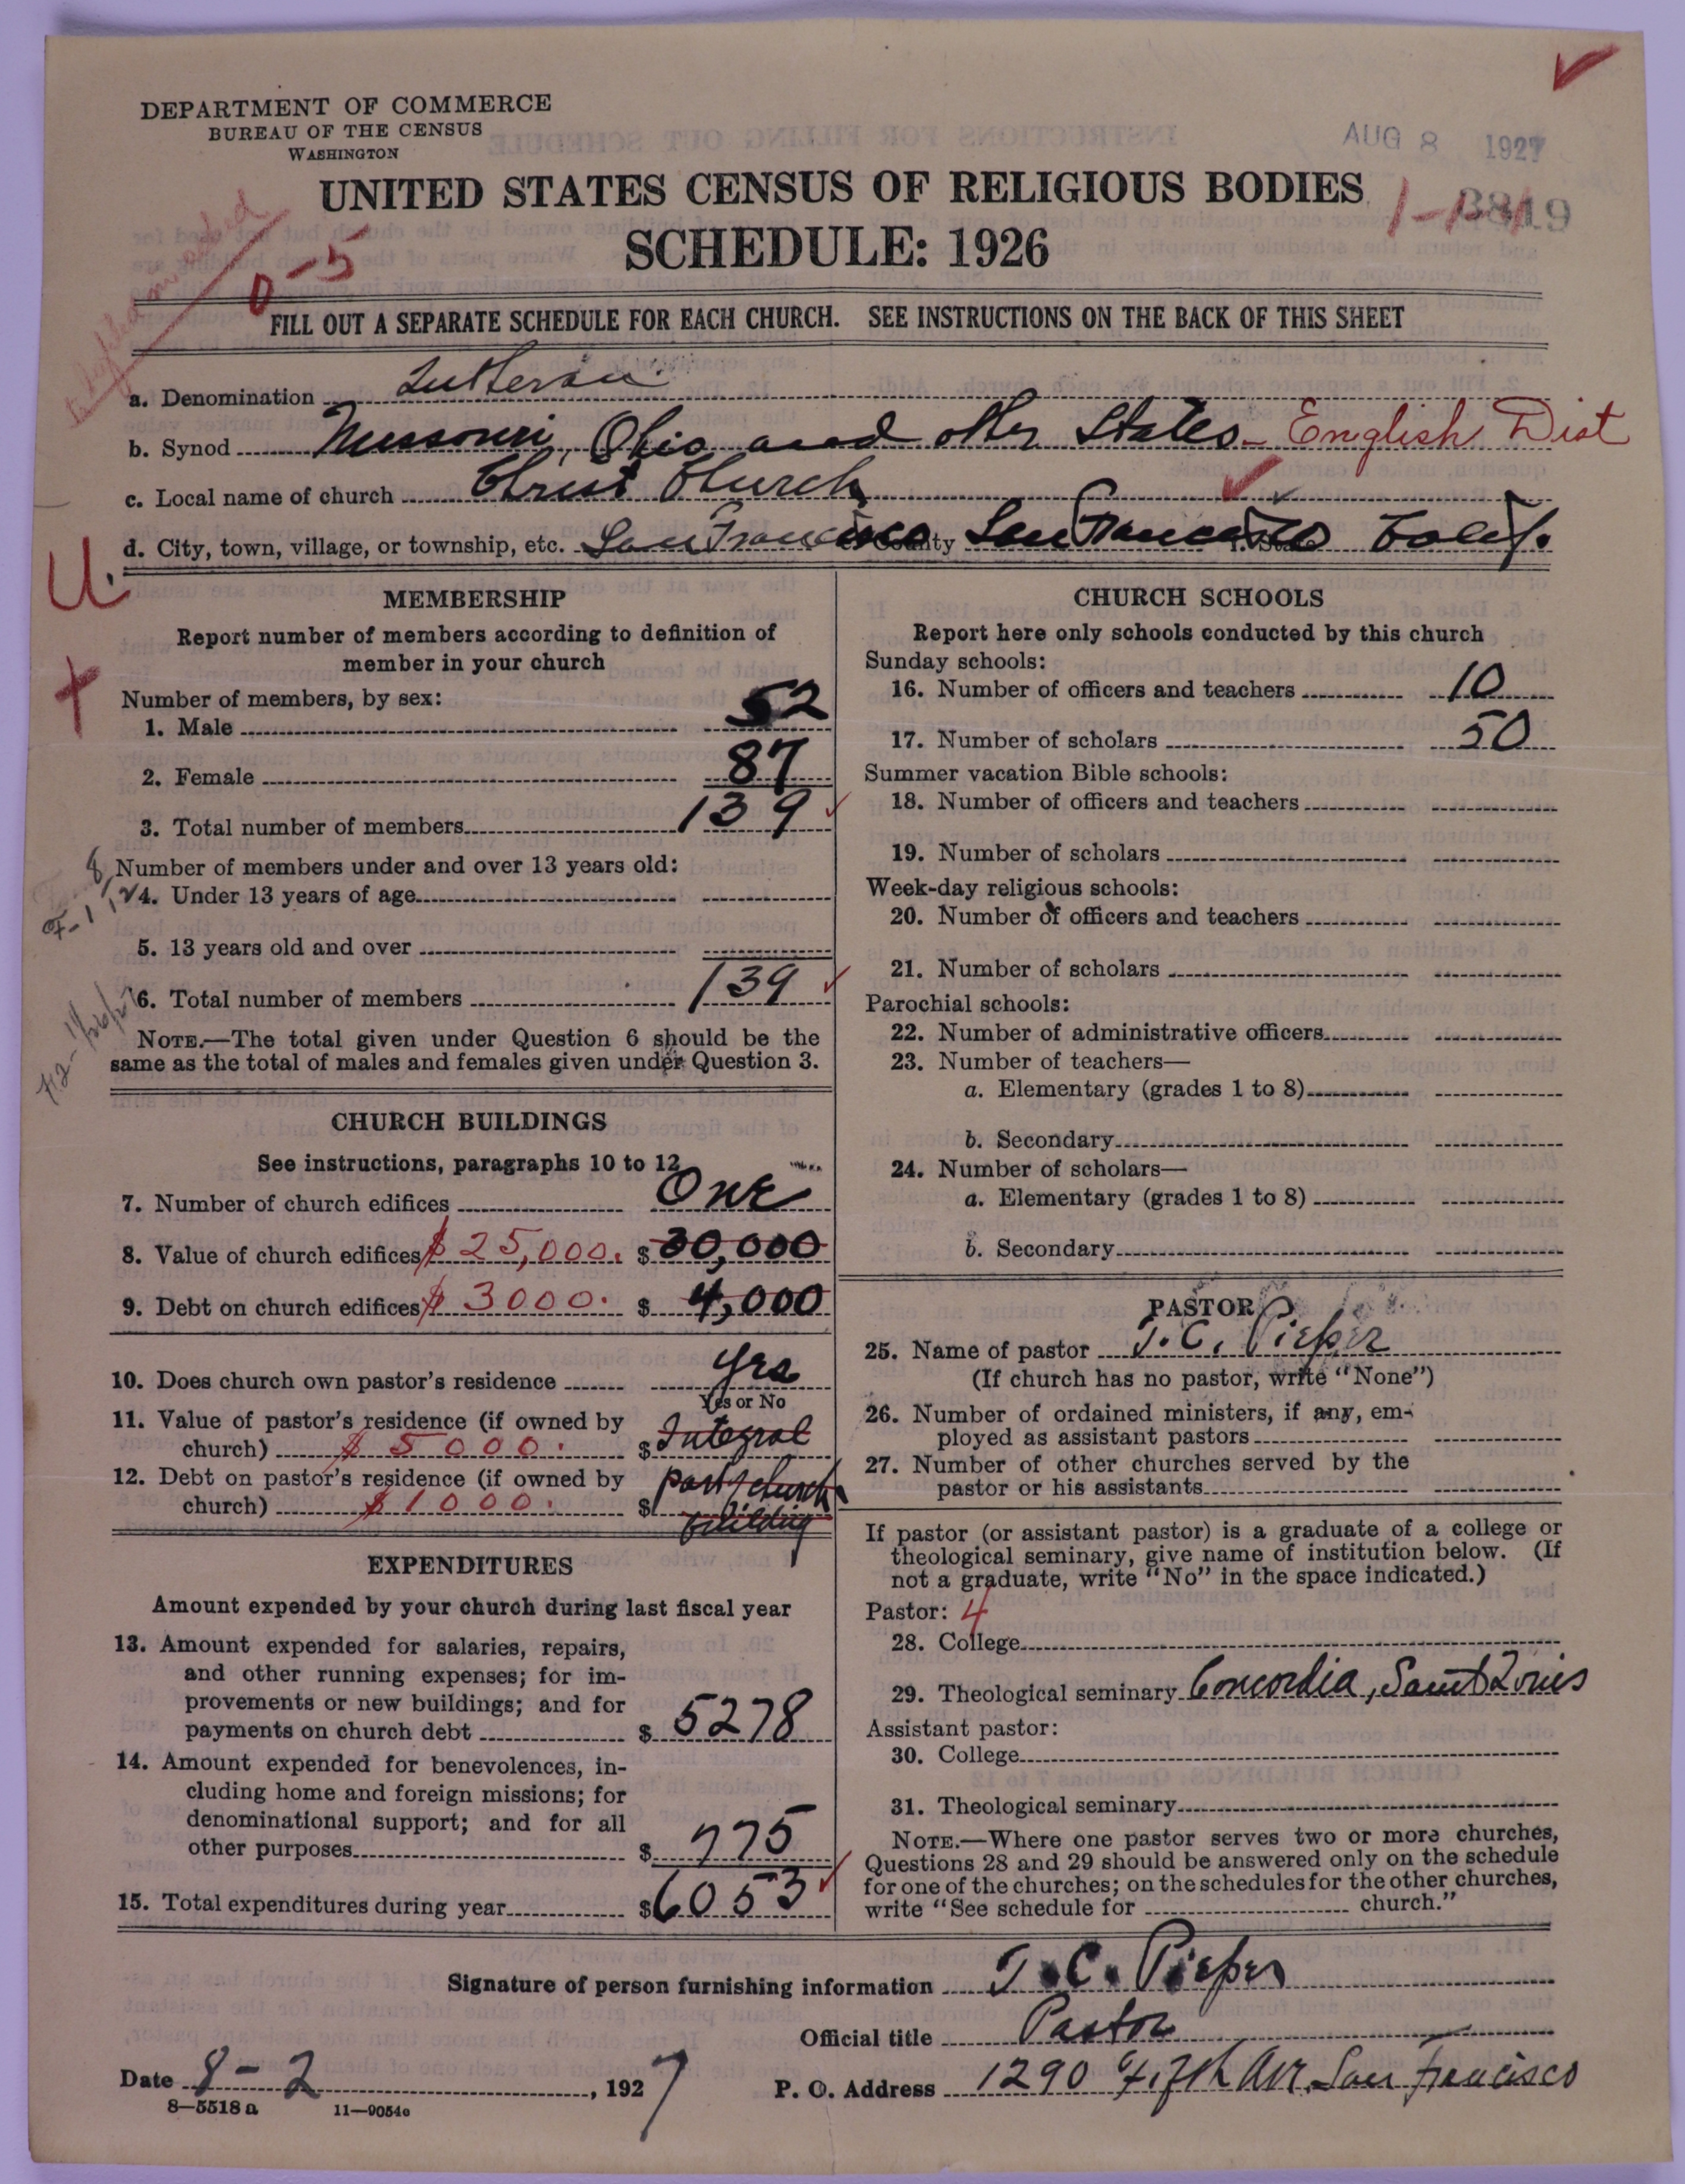 DEPARTMENT OF COMMERCE
BUREAU OF THE CENSUS
WASHINGTON
AUG 8 1927
UNITED STATES CENSUS OF RELIGIOUS BODIES
SCHEDULE: 1926
0-5
FILL OUT A SEPARATE SCHEDULE FOR EACH CHURCH. SEE INSTRUCTIONS ON THE BACK OF THIS SHEET
a. Denomination Lutheran
b. Synod Missouri, Ohio and other States - English Dist
c. Local name of church Christ Church
d. City, town, village, or township, etc. San Francisco County San Francisco Calif.
U.
MEMBERSHIP
Report number of members according to definition of
member in your church
Number of members, by sex:
1. Male 52
2. Female 87
3. Total number of members 139
Number of members under and over 13 years old:
4. Under 13 years of age
5. 13 years old and over
6. Total number of members 139
NOTE.—The total given under Question 6 should be the
same as the total of males and females given under Question 3.
CHURCH BUILDINGS
See instructions, paragraphs 10 to 12
7. Number of church edifices One
8. Value of church edifices $ 25,000. $ 30,000
9. Debt on church edifices $ 3000. $ 4,000
10. Does church own pastor's residence yes
Yes or No
11. Value of pastor's residence (if owned by
church) $ 5000. $ Integral
12. Debt on pastor's residence (if owned by part church
church) $ 1000. $ building
EXPENDITURES
Amount expended by your church during last fiscal year
13. Amount expended for salaries, repairs,
and other running expenses; for im-
provements or new buildings; and for
payments on church debt $ 5278
14. Amount expended for benevolences, in-
cluding home and foreign missions; for
denominational support; and for all
other purposes $ 775
15. Total expenditures during year $6053
CHURCH SCHOOLS
Report here only schools conducted by this church
Sunday schools:
16. Number of officers and teachers 10
17. Number of scholars 50
Summer vacation Bible schools:
18. Number of officers and teachers
19. Number of scholars
Week-day religious schools:
20. Number of officers and teachers
21. Number of scholars
Parochial schools:
22. Number of administrative officers
23. Number of teachers—
a. Elementary (grades 1 to 8)
b. Secondary
24. Number of scholars—
a. Elementary (grades 1 to 8)
b. Secondary
PASTOR
25. Name of pastor T. C. Pieper
(If church has no pastor, write "None")
26. Number of ordained ministers, if any, em-
ployed as assistant pastors
27. Number of other churches served by the
pastor or his assistants
If pastor (or assistant pastor) is a graduate of a college or
theological seminary, give name of institution below. (If
not a graduate, write "No" in the space indicated.)
Pastor: 4
28. College
29. Theological seminary Concordia, Saint Louis
Assistant pastor:
30. College
31. Theological seminary
NOTE.—Where one pastor serves two or more churches,
Questions 28 and 29 should be answered only on the schedule
for one of the churches; on the schedules for the other churches,
write "See schedule for church."
Signature of person furnishing information T. C. Pieper
Official title Pastor
Date 8-2, 1927
P. O. Address 1290 Fifth Ave. San Francisco
8-5518 a 11-9054c